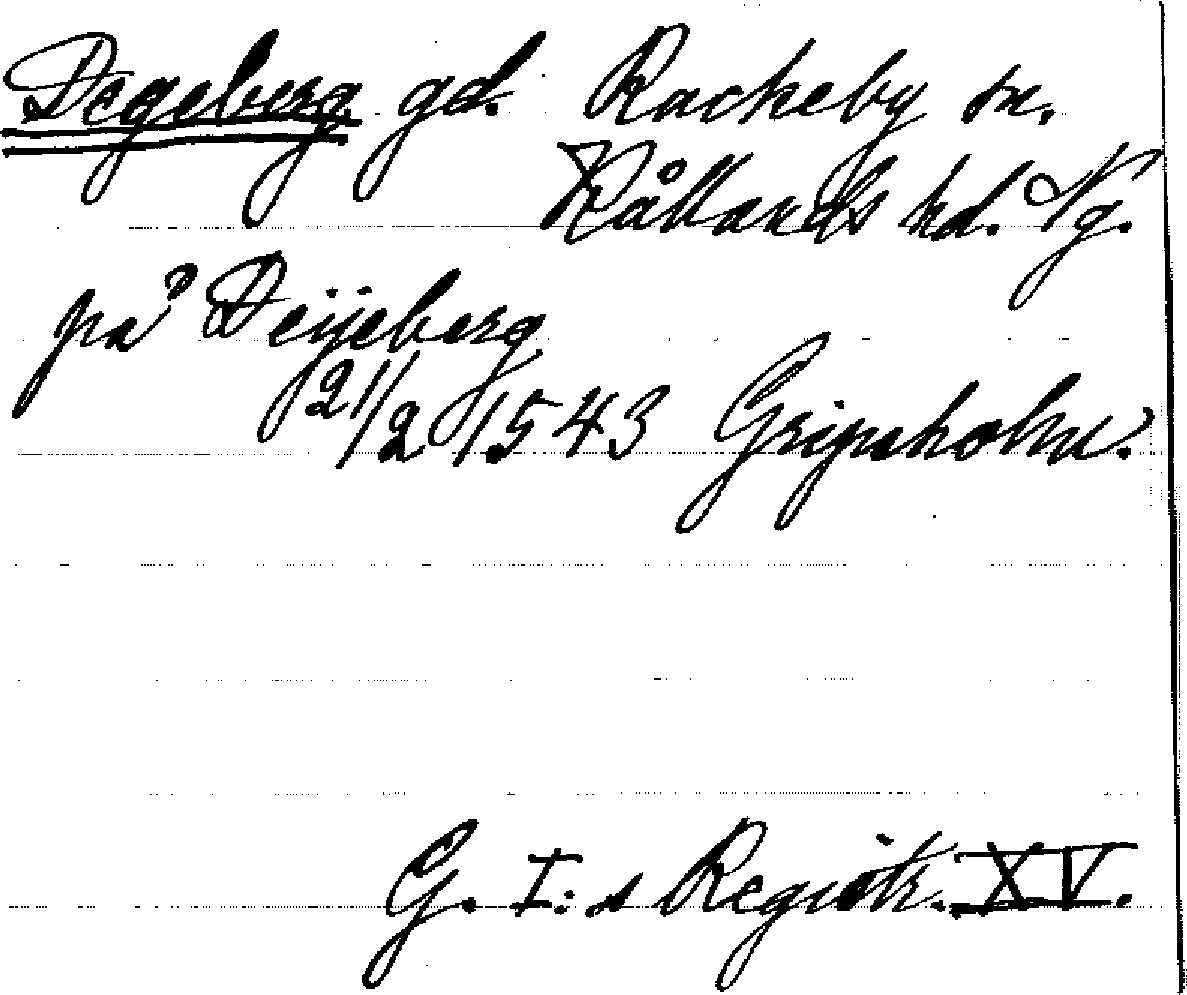 Degeberg gd. Rackeby sn.
Kållands hd. Vg.
på Deijeberg
21/2 1543 Gripsholm.
G. I:s Registr. XV.